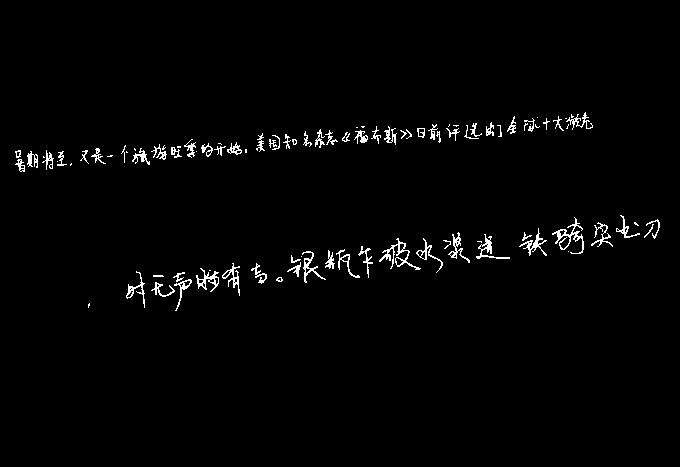 暑期将至,又是一个旅游旺季的开始,美国知名杂志《福布斯》日前评选出了全球十大濒危
,时无声胜有声。银瓶乍破水浆迸 铁骑突出刀